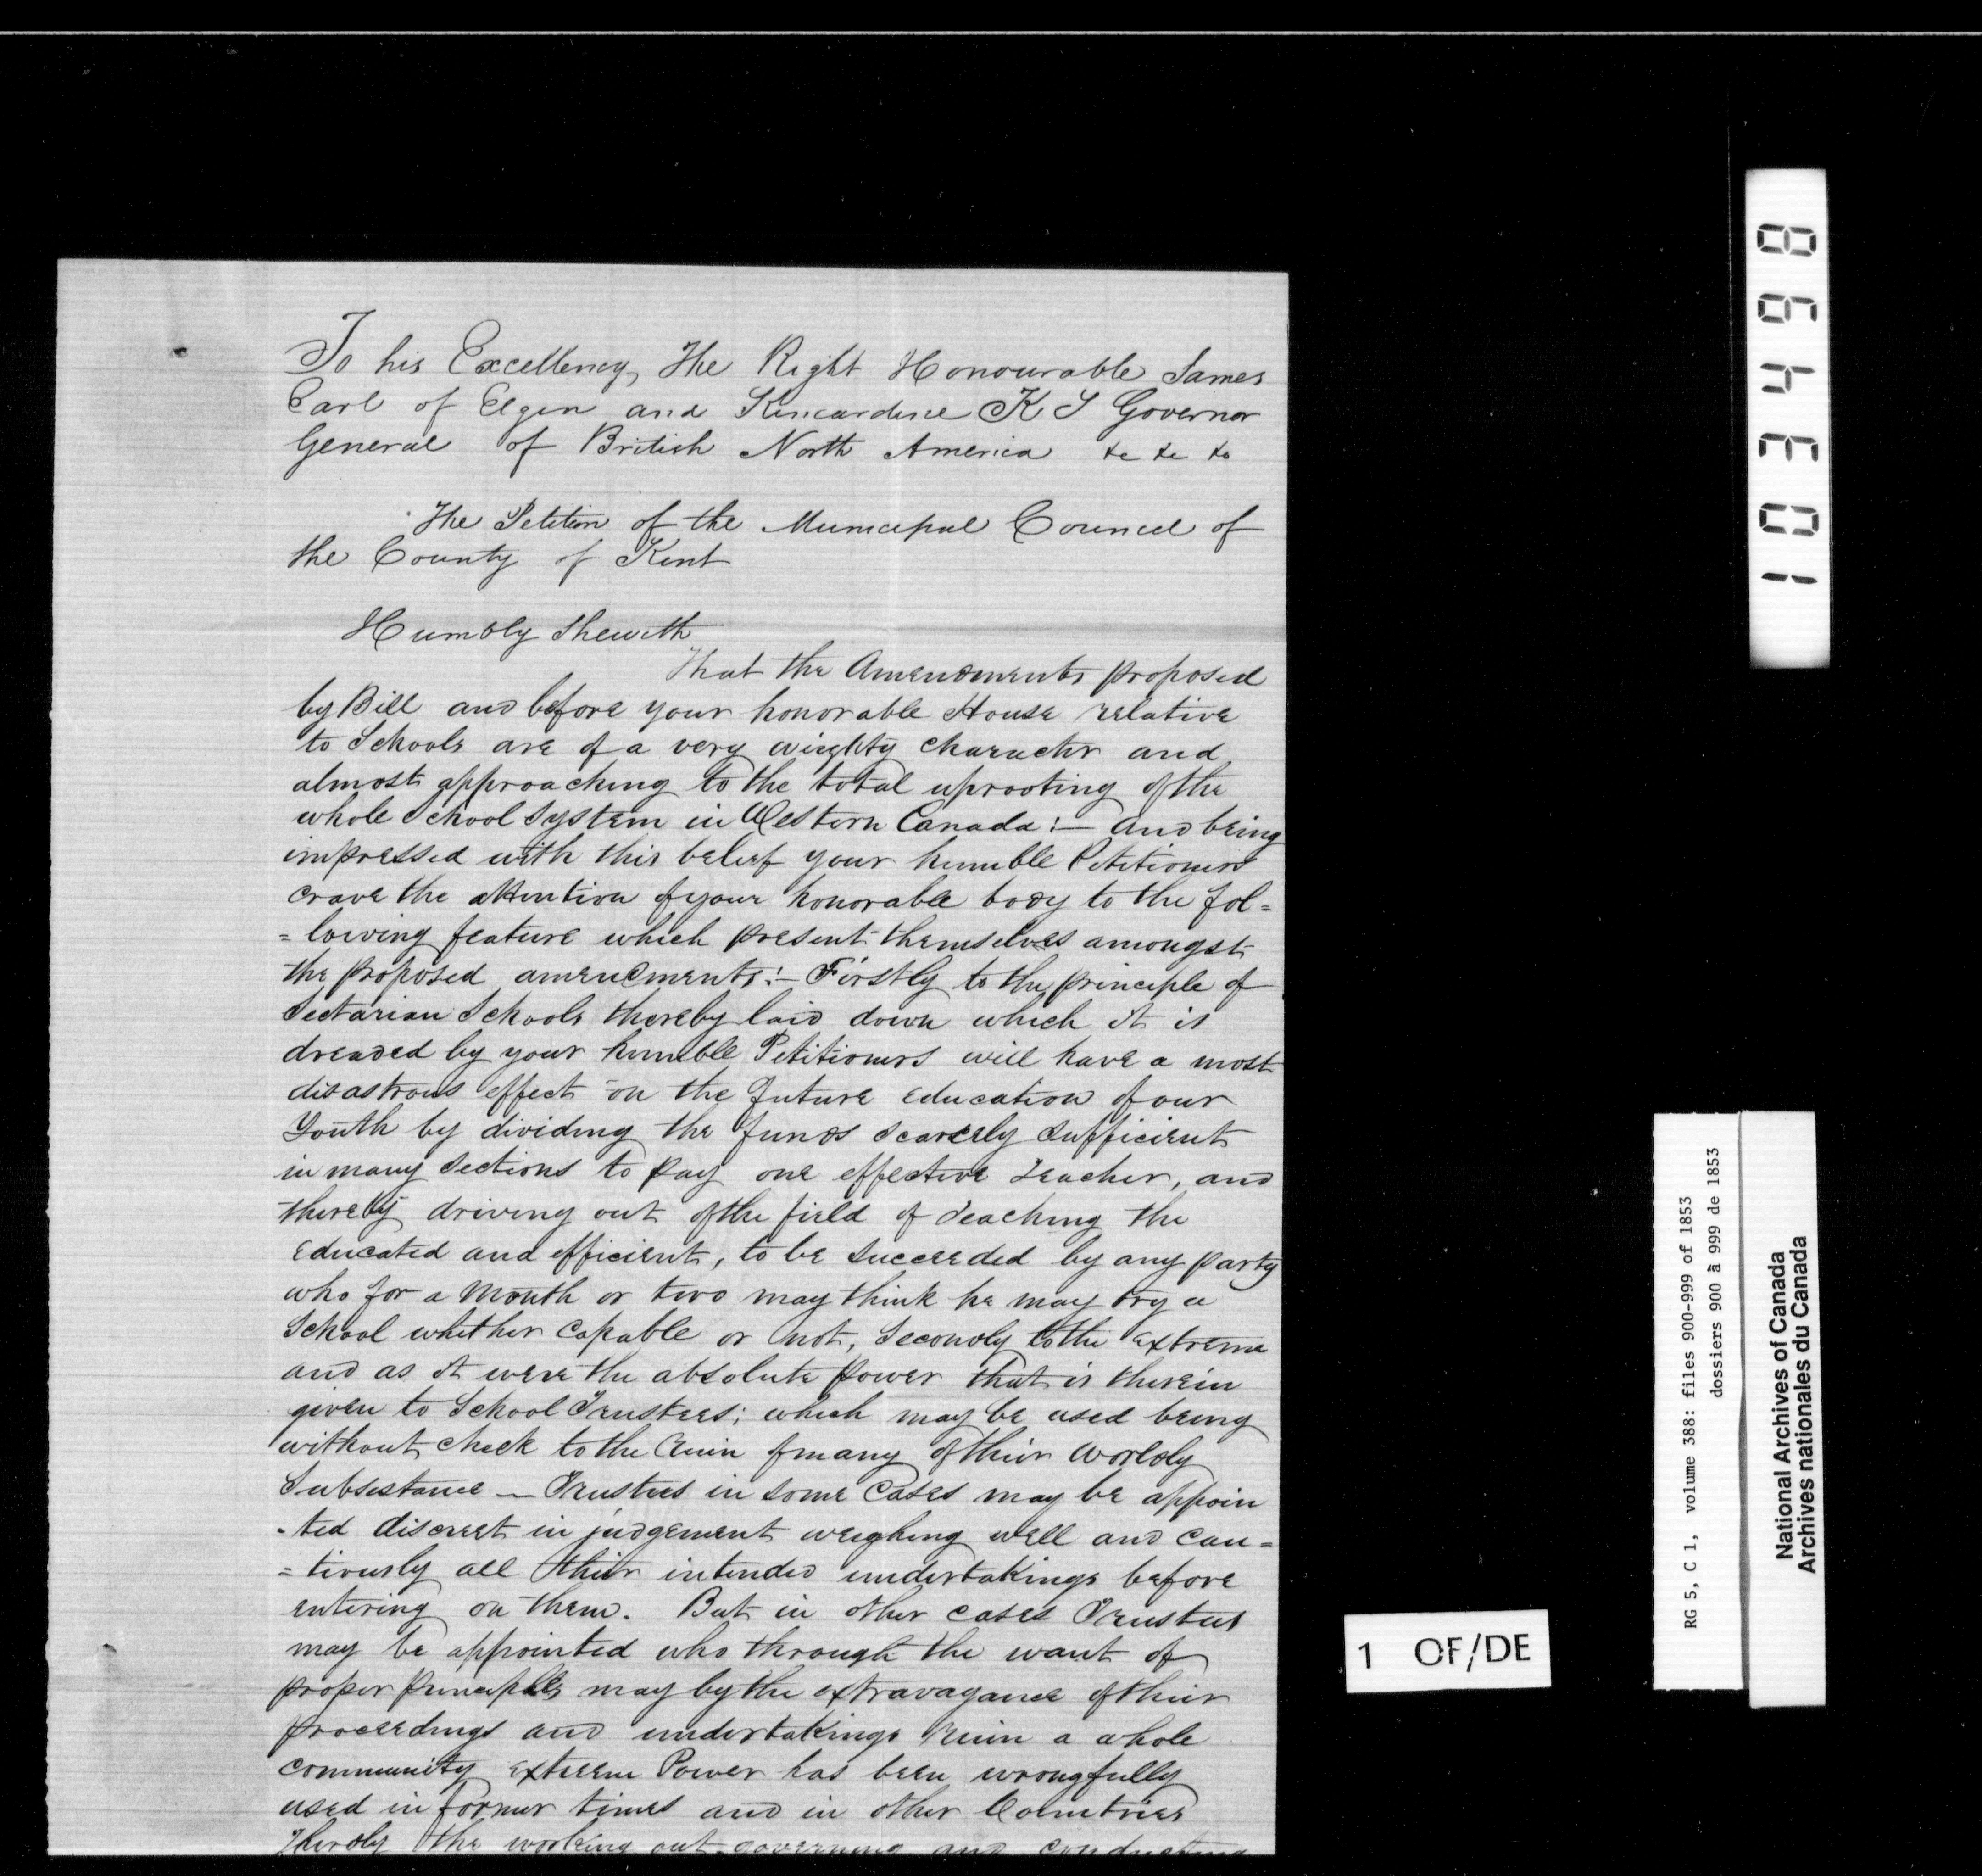 To his Excellency, The Right Honourable James
Earl of Elgin and Kincardine K T Governor
General of British North America &c &c &c
The Petition of the Municipal Council of
the County of Kent
Humbly Sheweth
That the Amendments proposed
by Bill and before your honorable House relative
to Schools are of a very wieghty character and
almost approaching to the total uprooting of the
whole School System in Western Canada:— And being
impressed with this belief your humble Petitioners
crave the attention of your honorable body to the fol=
=lowing feature which present themselves amongst
the proposed amendments:— Firstly to the principle of
Sectarian Schools thereby laid down which it is
dreaded by your humble Petitioners will have a most
disastrous effect on the future education of our
Youth by dividing the funds scarcely sufficient
in many sections to pay one effective Teacher, and
thereby driving out of the field of Teaching the
educated and efficient, to be succeeded by any party
who for a Month or two may think he may try a
School whether capable or not, Secondly to the extreme
and as it were the absolute power that is therein
given to School Trustees; which may be used being
without check to the ruin of many of their worldly
Subsistance — Trustees in some cases may be appoin
-ted discreet in judgement weighing well and cau=
=tiously all their intended undertakings before
entering on them. But in other cases Trustees
may be appointed who through the want of
proper principles may by the extravagance of their
proceedings and undertakings ruin a whole
community extreem Power has been wrongfully
used in former times and in other Countries
Thirdly the working out governing and conducting
103498
RG 5, C 1, volume 388: files 900-999 of 1853
dossiers 900 à 999 de 1853
National Archives of Canada
Archives nationales du Canada
1 OF/DE